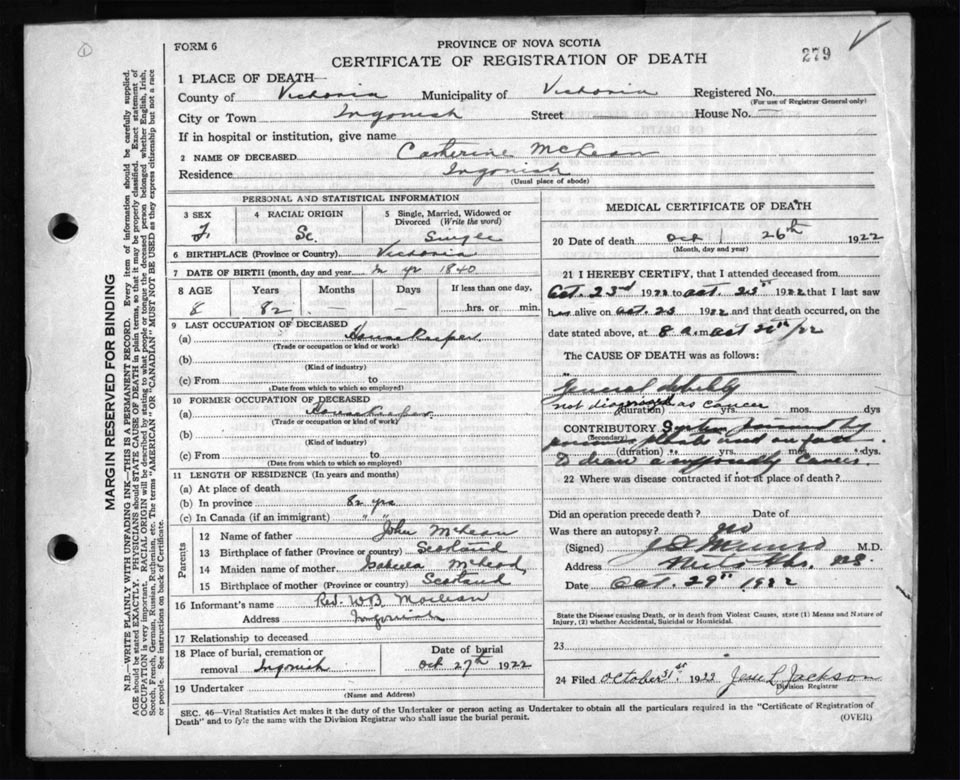 FORM 6
PROVINCE OF NOVA SCOTIA
CERTIFICATE OF REGISTRATION OF DEATH
279
1 PLACE OF DEATH—
County of Victoria Municipality of Victoria Registered No.
(For use of Registrar General only)
City or Town Ingonish Street House No.
If in hospital or institution, give name
2 NAME OF DECEASED Catherine McLean
Residence Ingonish
(Usual place of abode)
PERSONAL AND STATISTICAL INFORMATION
3 SEX 4 RACIAL ORIGIN 5 Single, Married, Widowed or Divorced (Write the word)
F. Sc. Single
6 BIRTHPLACE (Province or Country) Victoria
7 DATE OF BIRTH (month, day and year) 1840
8 AGE Years Months Days If less than one day,
82 - - hrs. or min.
9 LAST OCCUPATION OF DECEASED
(a) Housekeeper
(Trade or occupation or kind or work)
(b)
(Kind of industry)
(c) From to
(Date from which to which so employed)
10 FORMER OCCUPATION OF DECEASED
(a) Housekeeper
(Trade or occupation or kind of work)
(b)
(Kind of industry)
(c) From to
(Date from which to which so employed)
11 LENGTH OF RESIDENCE (In years and months)
(a) At place of death
(b) In province 82 yrs
(c) In Canada (if an immigrant) " "
Parents
12 Name of father John McLean
13 Birthplace of father (Province or country) Scotland
14 Maiden name of mother Isabella McLeod
15 Birthplace of mother (Province or country) Scotland
16 Informant's name Rev. W B Maclean
Address Ingonish
17 Relationship to deceased
18 Place of burial, cremation or removal Ingonish
Date of burial
Oct 27th 1922
19 Undertaker
(Name and Address)
MEDICAL CERTIFICATE OF DEATH
20 Date of death Oct 26th 1922
(Month, day and year)
21 I HEREBY CERTIFY, that I attended deceased from
Oct. 23rd 1922 to Oct. 1922 that I last saw
her alive on Oct. 23 1922 and that death occurred, on the
date stated above, at 8 a.m Oct 26th/22
The CAUSE OF DEATH was as follows:
General debility
not diagnosed as cancer
(duration) yrs. mos. dys
CONTRIBUTORY System
(Secondary) used on face
(duration) yrs. mos. dys.
To draw a supposedly cancer.
22 Where was disease contracted if not at place of death?
Did an operation precede death? Date of
Was there an autopsy? No
(Signed) Munro M.D.
Address N.S.
Date Oct. 29th 1922
State the Disease causing Death, or in death from Violent Causes, state (1) Means and Nature of
Injury, (2) whether Accidental, Suicidal or Homicidal.
23
24 Filed October 31st 1922 Jackson
Division Registrar
SEC. 46—Vital Statistics Act makes it the duty of the Undertaker or person acting as Undertaker to obtain all the particulars required in the "Certificate of Registration of
Death" and to fyle the same with the Division Registrar who shall issue the burial permit.
(OVER)
MARGIN RESERVED FOR BINDING
N.B.—WRITE PLAINLY WITH UNFADING INK—THIS IS A PERMANENT RECORD. Every item of information should be carefully supplied.
AGE should be stated EXACTLY. PHYSICIANS should STATE CAUSE OF DEATH in plain terms, so that it may be properly classified. Exact statement of
OCCUPATION is very important. RACIAL ORIGIN will be described by stating to what people or tongue the deceased person belonged whether English, Irish,
Scotch, French, German, Russian, Ruthenian, etc. The terms "AMERICAN" or "CANADIAN" MUST NOT BE USED as they express citizenship but not a race
or people. See instructions on back of Certificate.